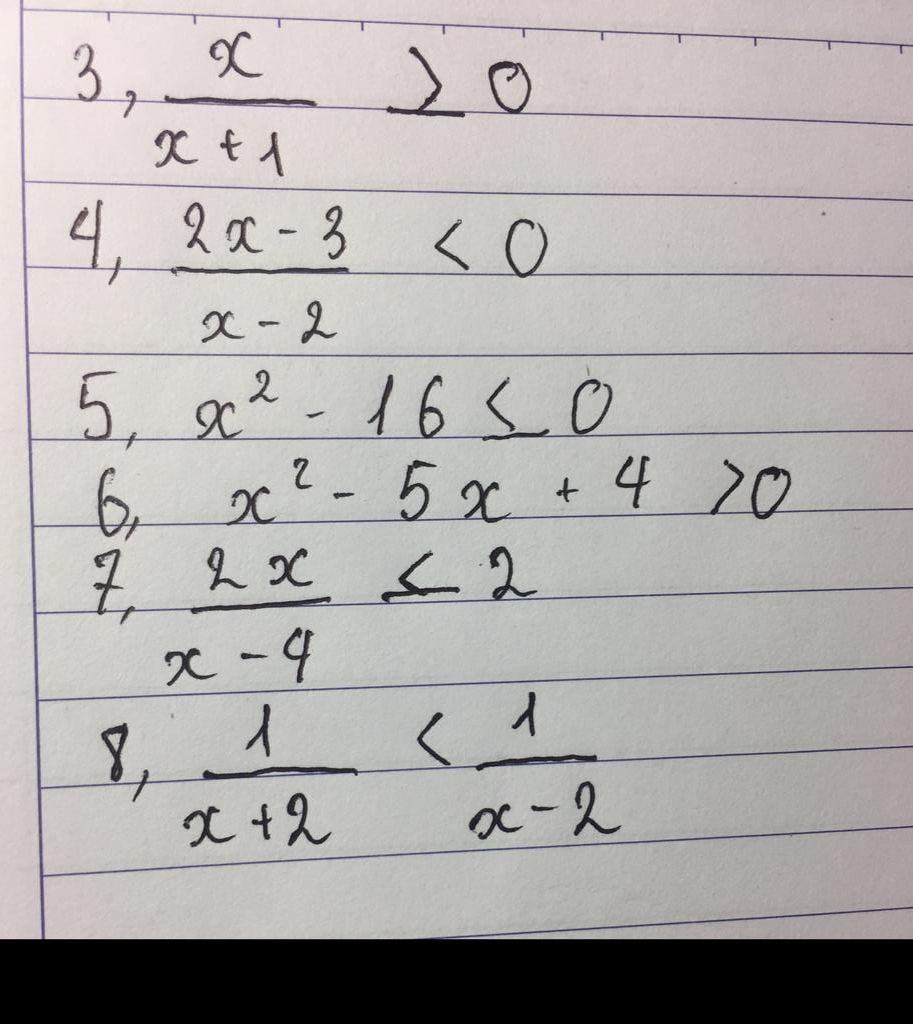 3, x/(x+1) ≥ 0
4, (2x-3)/(x-2) < 0
5, x² - 16 ≤ 0
6, x² - 5x + 4 > 0
7, 2x/(x-4) ≤ 2
8, 1/(x+2) < 1/(x-2)